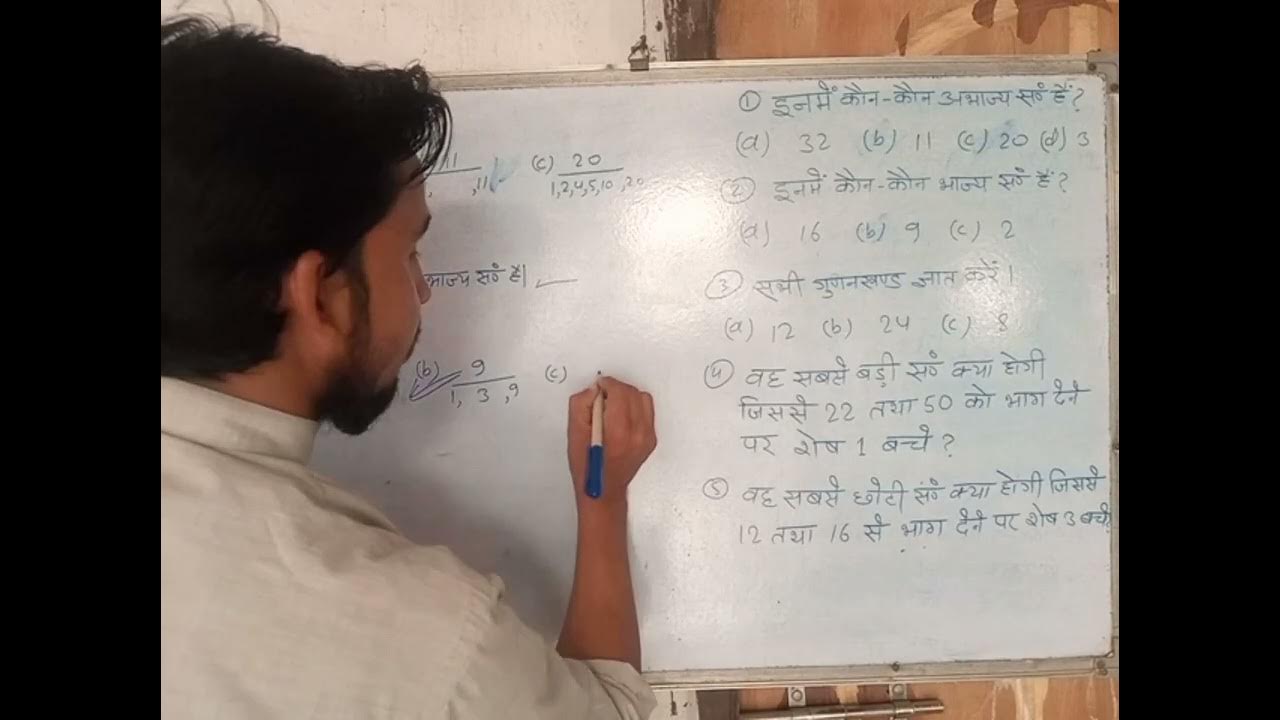 11 (c) 20
,11 1,2,4,5,10,20
भाज्य सं० हैं।
(b) 9 (c)
1, 3, 9
① इनमें कौन-कौन अभाज्य सं० हैं?
(a) 32 (b) 11 (c) 20 (d) 3
② इनमें कौन-कौन भाज्य सं० हैं?
(a) 16 (b) 9 (c) 2
③ सभी गुणनखण्ड ज्ञात करें।
(a) 12 (b) 24 (c) 8
④ वह सबसे बड़ी सं० क्या होगी
जिससे 22 तथा 50 को भाग देने
पर शेष 1 बच्चे?
⑤ वह सबसे छोटी सं० क्या होगी जिससे
12 तथा 16 से भाग देने पर शेष 3 बच्चे